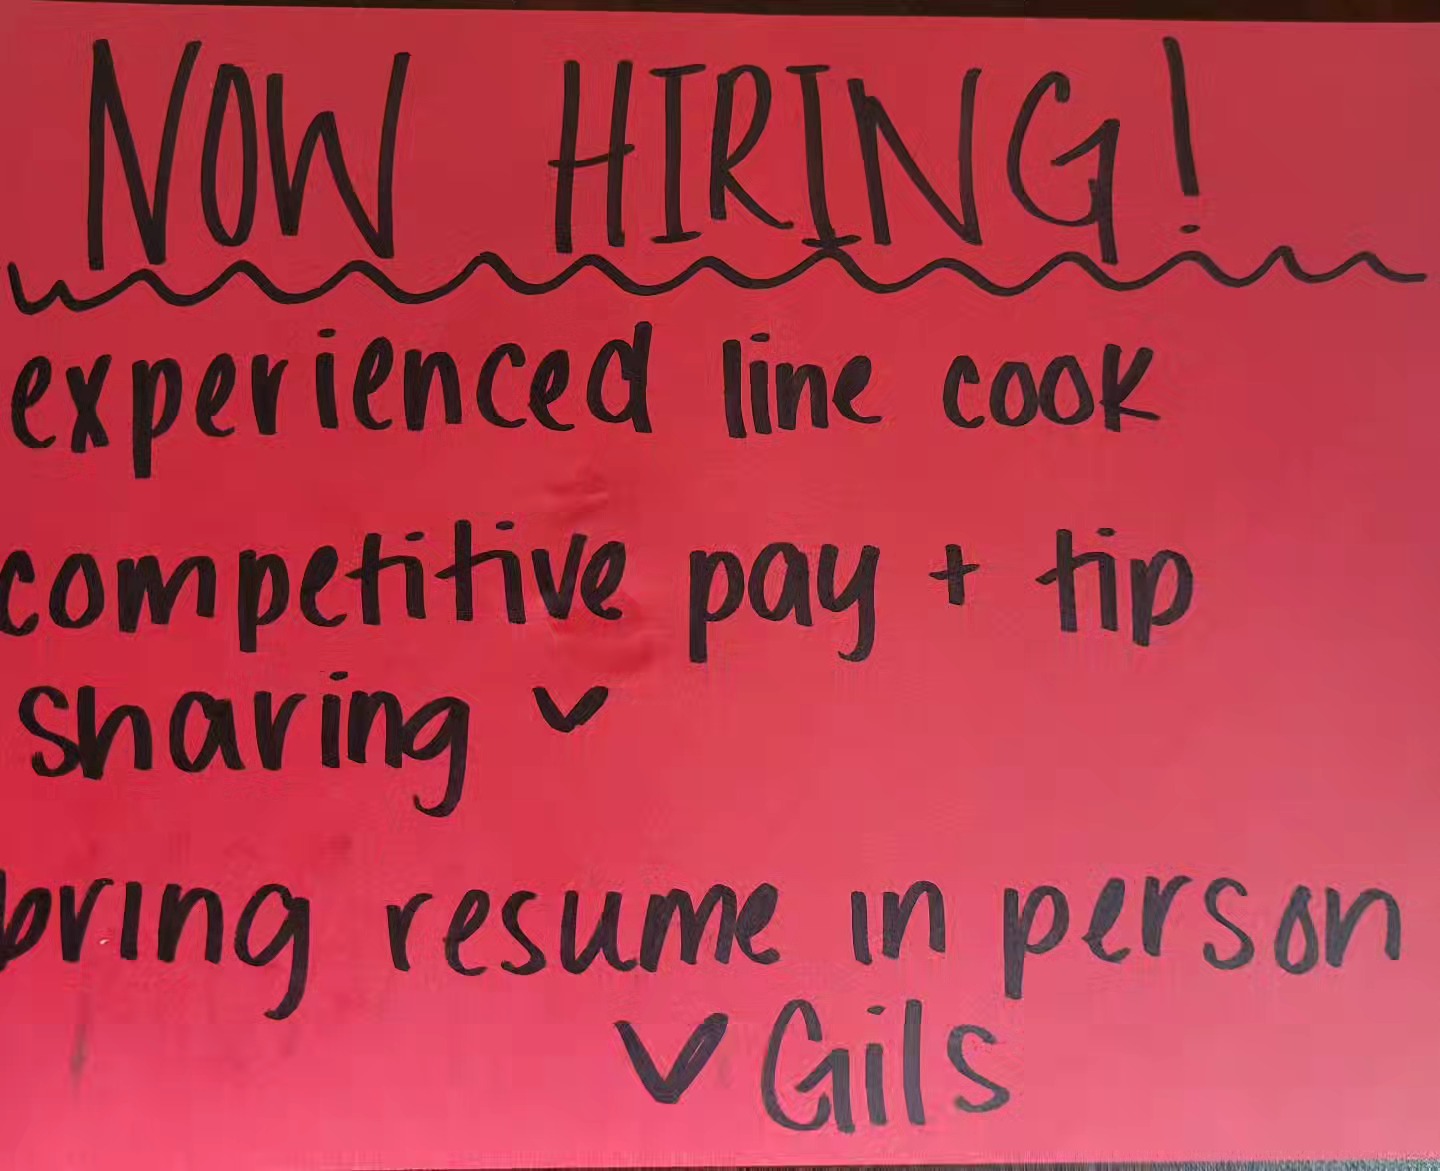 NOW HIRING!
experienced line cook
competitive pay + tip
sharing
bring resume in person
Gils